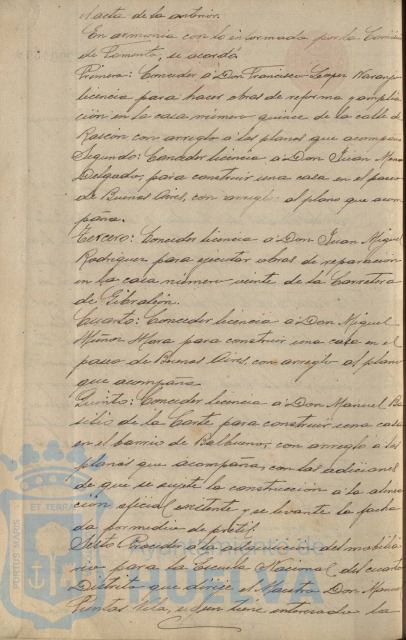 el acta de la anterior.
En armonia con lo informado por la Comisión
de Fomento, se acordó
Primero: Conceder á Don Francisco Lopez Naranjo
licencia para hacer obras de reforma y amplia
ción en la casa número quince de la calle de
Rascón con arreglo á los planos que acompaña
Segundo: Conceder licencia á Don Juan
Delgado, para construir una casa en el paseo
de Buenos Aires, con arreglo al plano que acom
paña.
Tercero: Conceder licencia á Don Juan Miguel
Rodriguez para ejecutar obras de reparación
en la casa número veinte de la Carretera
de Gibraleón.
Cuarto: Conceder licencia á Don Miguel
Muñoz Mora para construir una casa en el
paseo de Buenos Aires, con arreglo al plano
que acompaña
Quinto: Conceder licencia á Don Manuel Ba
silio de la Corte para construir una casa
en el barrio de Balbueno, con arreglo á los
planos que acompaña, con las adiciones
de que se sujete la construcción á la alinea
ción oficial existente y se levante la facha
da por medio de pretil.
Sexto: Proceder á la adquisición del mobilia
rio para la Escuela Nacional del cuarto
Distrito que dirije el Maestro Don Manuel
Vila, quien tiene interesado la
PORTUS MARIS ET TERRAE
Ayuntamiento de
HUELVA